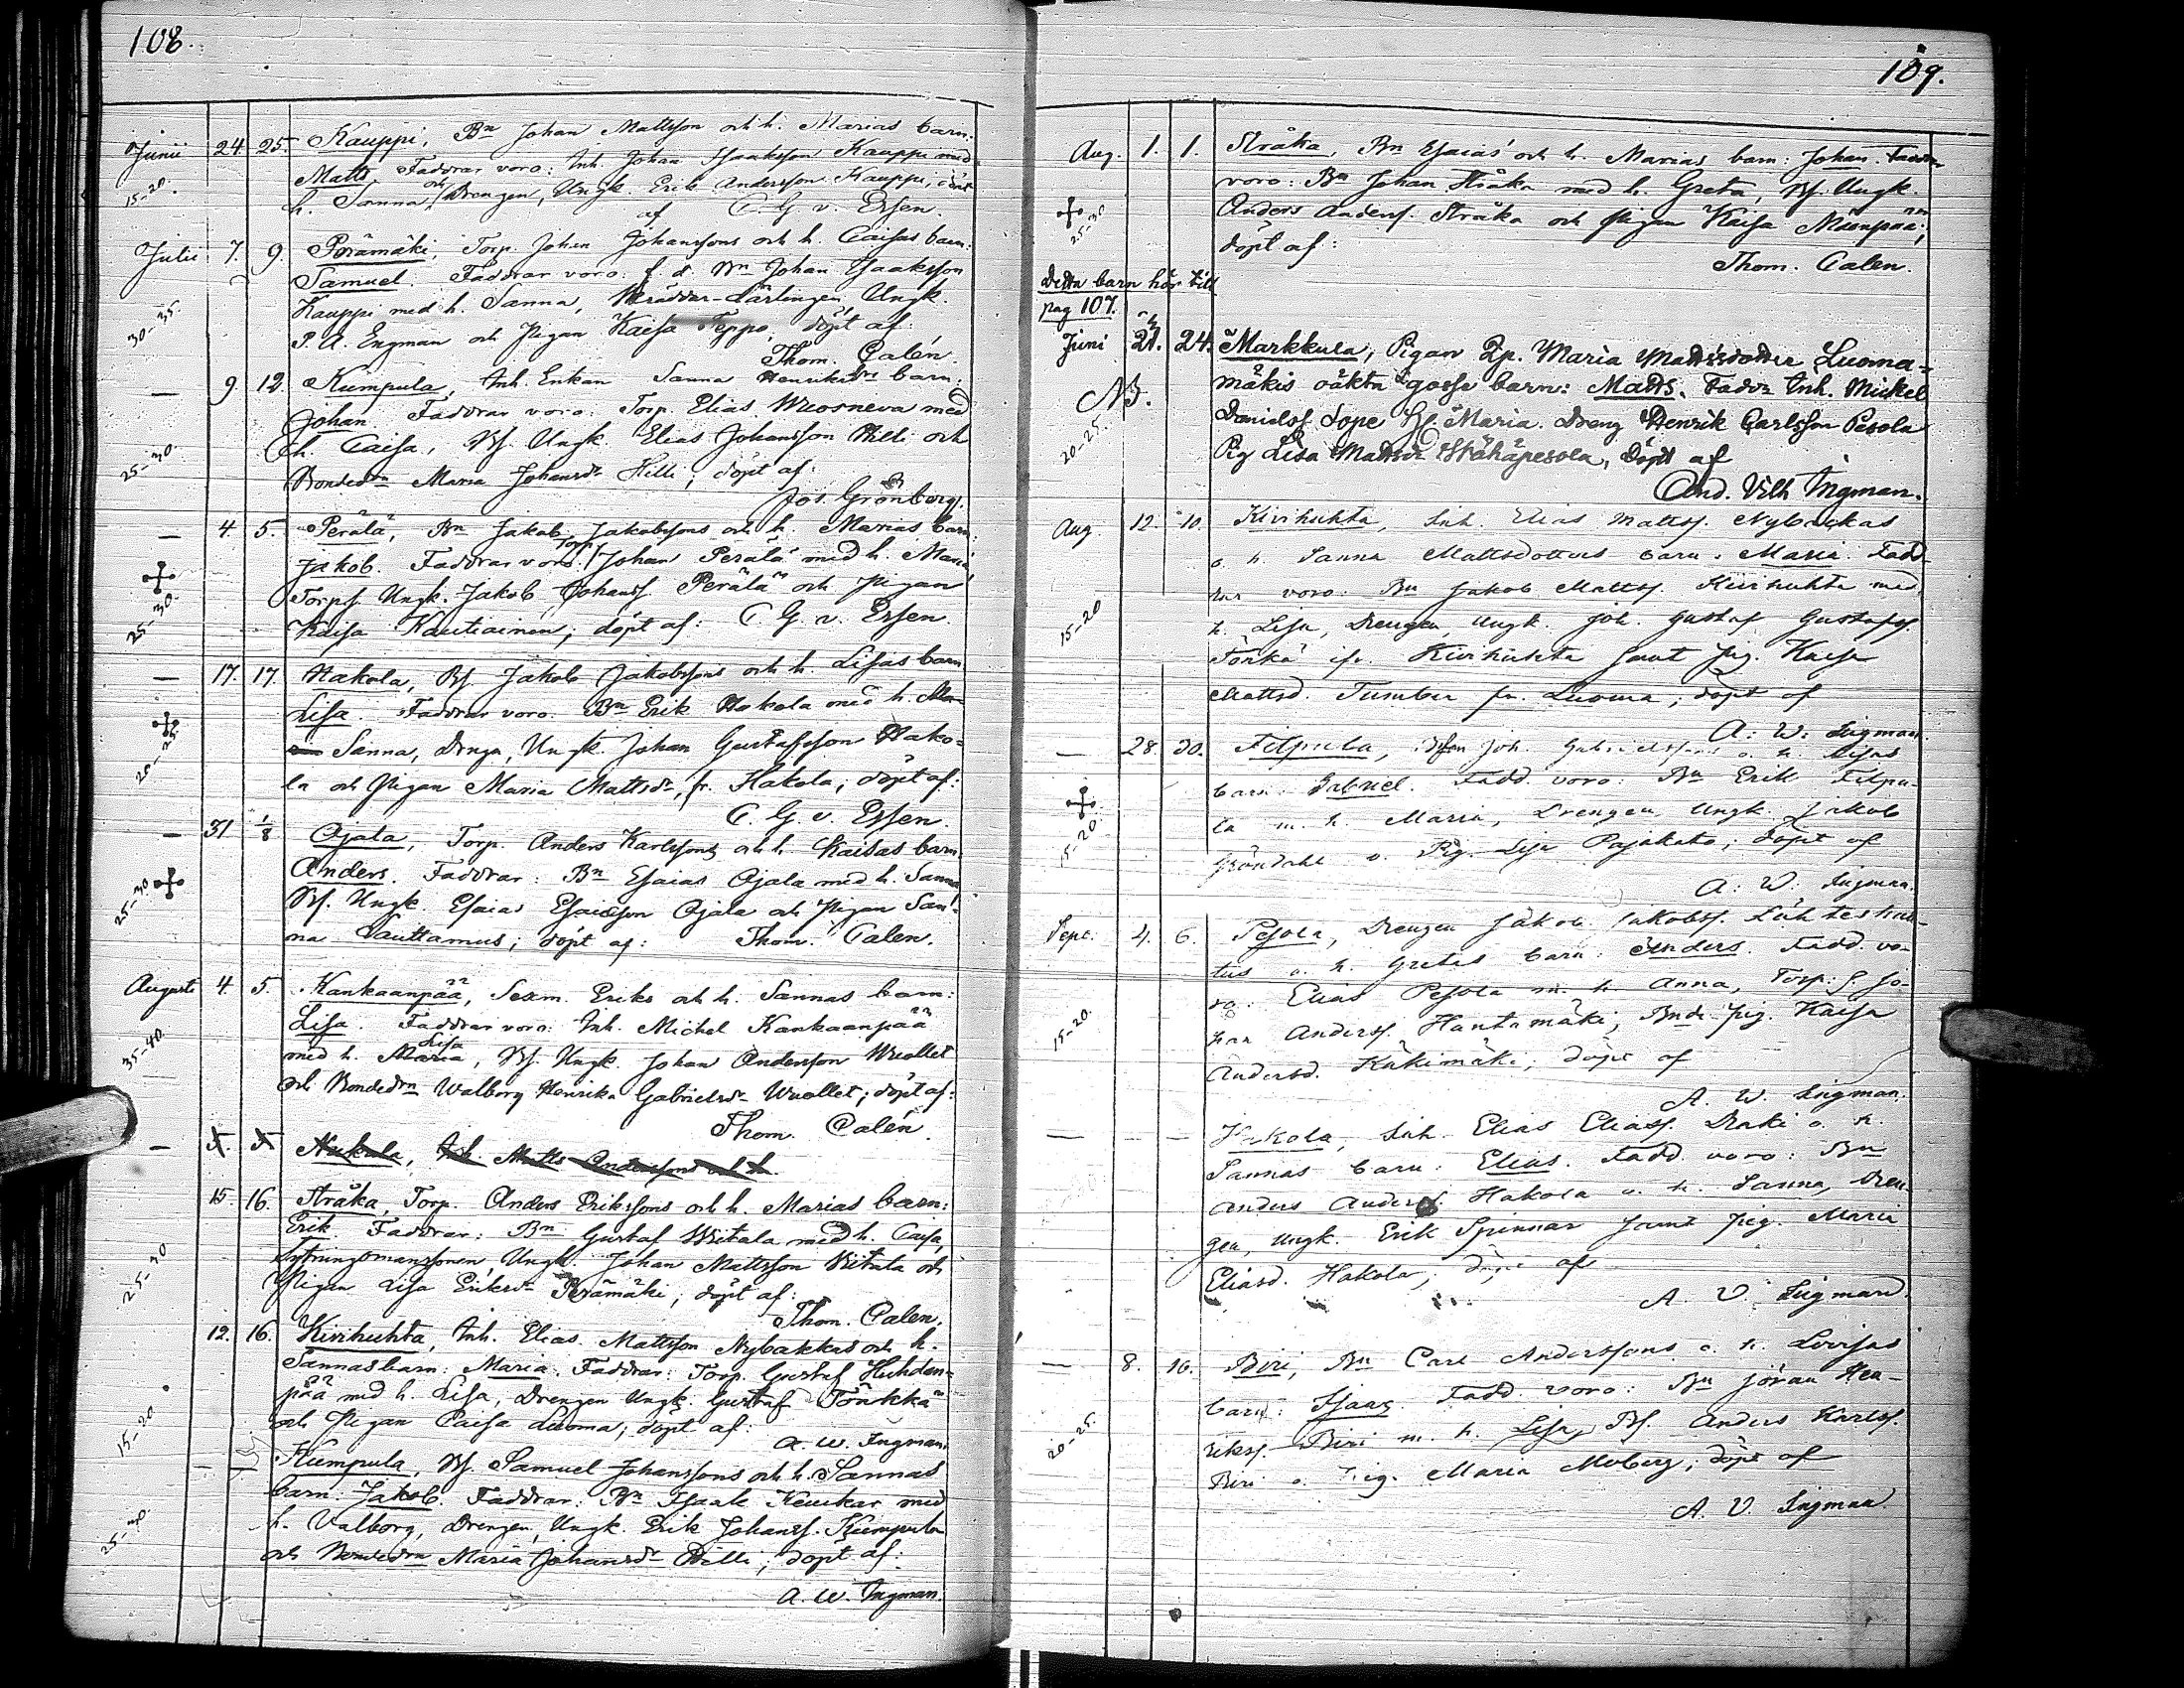 108.
Junii 24. 25. Kauppi, Bn Johan Mattsson och h. Marias barn:
Matts. Faddrar voro: Inh. Johan Isaaksson Kauppi med
15-20. h. Sanna, och Drengen, Ungk. Erik Andersson Kauppi, döpt
af C. G. v. Essen.
Julii 7. 9. Perämäki, Torp. Johan Johanssons och h. Caisas barn:
Samuel. Faddrar voro: f. d. Bn Johan Isaaksson
Kauppi med h. Sanna, Skräddar-Lärlingen, Ungk.
30-35. P. A. Engman och Pigan Kaisa Teppo, döpt af:
Thom. Calén.
— 9. 12. Kumpula, Inh. Enkan Sanna Henriksdrs barn:
Johan. Faddrar voro: Torp. Elias Wuosneva med
h. Caisa, Bs. Ungk. Elias Johansson Hilli och
25-30. Bondedn Maria Johansdr Hilli; döpt af:
Jos. Grönberg.
— 4. 5. Perälä, Bn Jakob Jakobssons och h. Marias barn:
Jakob. Faddrar voro: Torp. Johan Perälä med h. Maria,
Torps. Ungk. Jakob Johanss. Perälä och Pigan
25-30. Kaisa Kautiainen; döpt af: C. G. v. Essen.
— 17. 17. Hakola, Bs. Jakob Jakobssons och h. Lisas barn
Lisa. Faddrar voro: Bn Erik Hakola med h.
Sanna, Dreng, Ungk. Johan Gustafsson Hako-
20-25. la och Pigan Maria Mattsdr, fr. Hakola; döpt af:
C. G. v. Essen.
— 31 1/8 Ojala, Torp. Anders Karlssons och h. Kaisas barn:
Anders. Faddrar: Bn Esaias Ojala med h. Sanna,
25-30 Bs. Ungk. Esaias Esaiasson Ojala och Pigan San-
na Lauttamus; döpt af: Thom. Calen.
Augusti 4. 5. Kankaanpää, Sexm. Eriks och h. Sannas barn:
Lisa. Faddrar voro: Inh. Michel Kankaanpää
35-40. med h. Maria Lisa, Bs. Ungk. Johan Andersson Wuollet
och Bondedrn Walborg Henrika Gabrielsdr Wuollet; döpt af:
Thom. Calén.
— Hakola, Inh. Matts Anderssons och h.
15. 16. Stråka, Torp. Anders Erikssons och h. Marias barn:
Erik. Faddrar: Bn Gustaf Wiitala med h. Caisa,
25-30 Sytningsmanssonen, Ungk. Johan Mattsson Wiitala och
Pigan Lisa Eriksdr Perämäki; döpt af:
Thom. Calen.
12. 16. Kivihuhta, Inh. Elias Mattsson Nybackas och h.
Sannas barn: Maria. Faddrar: Torp. Gustaf Huhdan-
pää med h. Lisa, Drengen Ungk. Gustaf Tönkkä
15-20 och Pigan Caisa Luoma; döpt af:
A. W. Ingman.
— — Kumpula, Bs. Samuel Johanssons och h. Sannas
barn: Jakob. Faddrar: Bn Isaak Keuckar med
h. Valborg, Drengen, Ungk. Erik Johanss. Kumpula
25-30. och Bondedrn Maria Johansdr Hilli; döpt af:
A. W. Ingman.
109.
Aug. 1. 1. Stråka, Bn Esaias' och h. Marias barn: Johan. Faddrar
voro: Bn Johan Stråka med h. Greta, Bs. Ungk.
25-30 Anders Anderss. Stråka och Pigan Kaisa Mäenpää;
döpt af:
Thom. Calen.
Detta barn hör till
pag 107.
Juni 21. 24. Markkula, Pigan Lp. Maria Mattsdotter Luoma-
NB. mäkis oäkta gosse barn: Matts. Faddr Inh. Mickel
Danielss. Sope H. Maria. Dreng Henrik Carlsson Pesola
20-25. Pig Lisa Mattsdr Wähäpesola, döpt af
And. Vilh Ingman.
Aug. 12. 10. Kivihuhta, Inh. Elias Mattss. Nybackas
o. h. Sanna Mattsdotters barn: Maria. Fadd-
rar voro: Bn Jakob Mattss. Kivihuhta med
15-20 h. Lisa, Drengen, Ungk. Joh. Gustaf Gustafss.
Tönkä ifr. Kivihuhta samt Pig. Kaisa
Mattsd. fr. Luoma; döpt af
A. W. Ingman.
— 28. 30. Filpula, Joh. Gabrielssons o. h. Lisas
barn: Gabriel. Fadd. voro: Bn Erik Filpu-
la m. h. Maria, Drengen Ungk. Jakob
15-20. Gröndahl o. Pig. Lisa Pajakato; döpt af
A: W: Ingman.
Sept. 4. 6. Pesola, Drengen Jakob Jakobss. Lähteshar-
jus o. h. Gretas barn: Anders. Fadd. vo-
ro: Elias Pesola m. h. Anna, Torp. s. Jo-
15-20. han Anderss. Hautamäki, Bnds. Pig. Kaisa
Andersd. Käkimäki; döpt af
A. W. Ingman.
— — Hakola, Inh. Elias Eliass. Draki o. h.
Sannas barn: Elias. Fadd. voro: Bn
Anders Anderss. Hakola o. h. Sanna, Dren-
gen, Ungk. Erik Spinnar samt Pig. Maria
Eliasd. Hakola; döpt af
A. V. Ingman.
— 8. 10. Biri, Bn Carl Anderssons o. h. Lovisas
barn: Isaac. Fadd. voro: Bn Jöran Hen-
rikss. Biri m. h. Lisa, Bs. Anders Karlss.
20-25. Biri o. Pig. Maria Moberg; döpt af
A. V. Ingman.